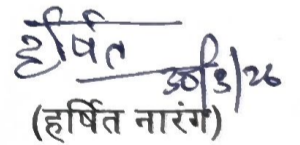 हर्षित
30/3/26
(हर्षित नारंग)